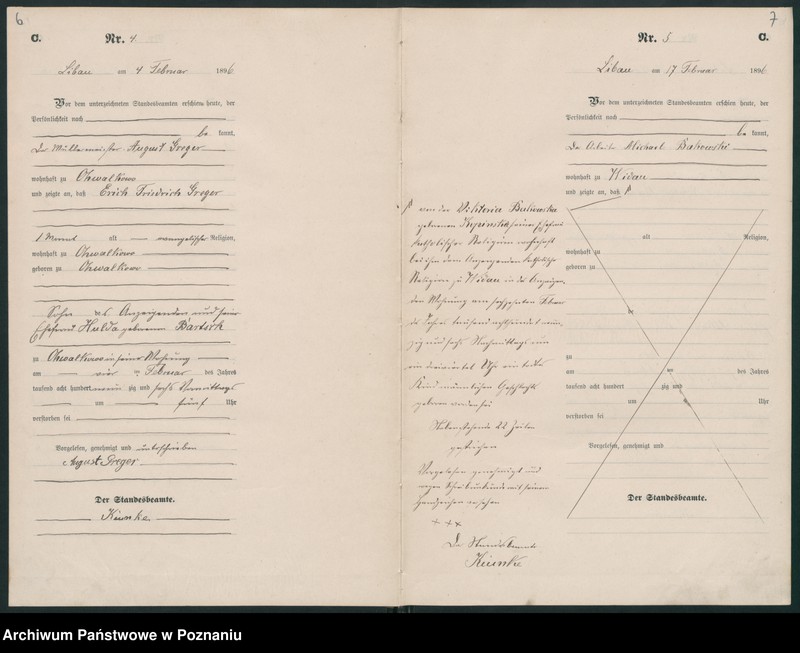 6
C.
Nr. 4
Libau am 4 Februar 1896
Vor dem unterzeichneten Standesbeamten erschien heute, der
Persönlichkeit nach
be kannt,
Der Müllermeister August Greger
wohnhaft zu Chwalkowo
und zeigte an, daß Erich Friedrich Greger
1 Monat alt evangelischer Religion,
wohnhaft zu Chwalkowo
geboren zu Chwalkowo
Sohn des Anzeigenden und seiner
Ehefrau Hulda geborenen Bartsch
zu Chwalkowo in seiner Wohnung
am vier ten Februar des Jahres
tausend acht hundert neun zig und sechs Vormittags
um fünf Uhr
verstorben sei
Vorgelesen, genehmigt und unterschrieben
August Greger
Der Standesbeamte.
Kiunke
7
Nr. 5
C.
Libau am 17 Februar 1896
Vor dem unterzeichneten Standesbeamten erschien heute, der
Persönlichkeit nach
be kannt,
Der Arbeiter Michael Bakowski
wohnhaft zu
und zeigte an, daß
alt Religion,
wohnhaft zu
geboren zu
zu
am ten des Jahres
tausend acht hundert zig und
um Uhr
verstorben sei
Vorgelesen, genehmigt und
Der Standesbeamte.
von der Viktoria Bakowska
geborenen seiner Ehefrau
katholischer Religion wohnhaft
bei ihm dem Anzeigenden katholischer
Religion zu in des Anzeigen
den Wohnung am sechszehnten Februar
des Jahres tausend achthundert neun
zig und sechs Nachmittags um
ein dreiviertel Uhr ein todtes
Kind männlichen Geschlechts
geboren worden sei
Nebenstehende 22 Zeilen
gestrichen
Vorgelesen genehmigt und
wegen Schreibunkunde mit seinem
Handzeichen versehen
+ + +
Der Standesbeamte
Kiunke
Archiwum Państwowe w Poznaniu